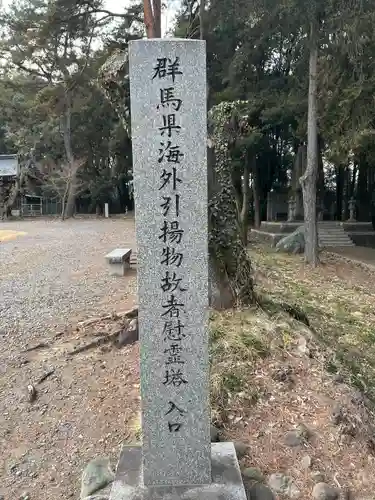 群馬県海外引揚物故者慰霊塔 入口